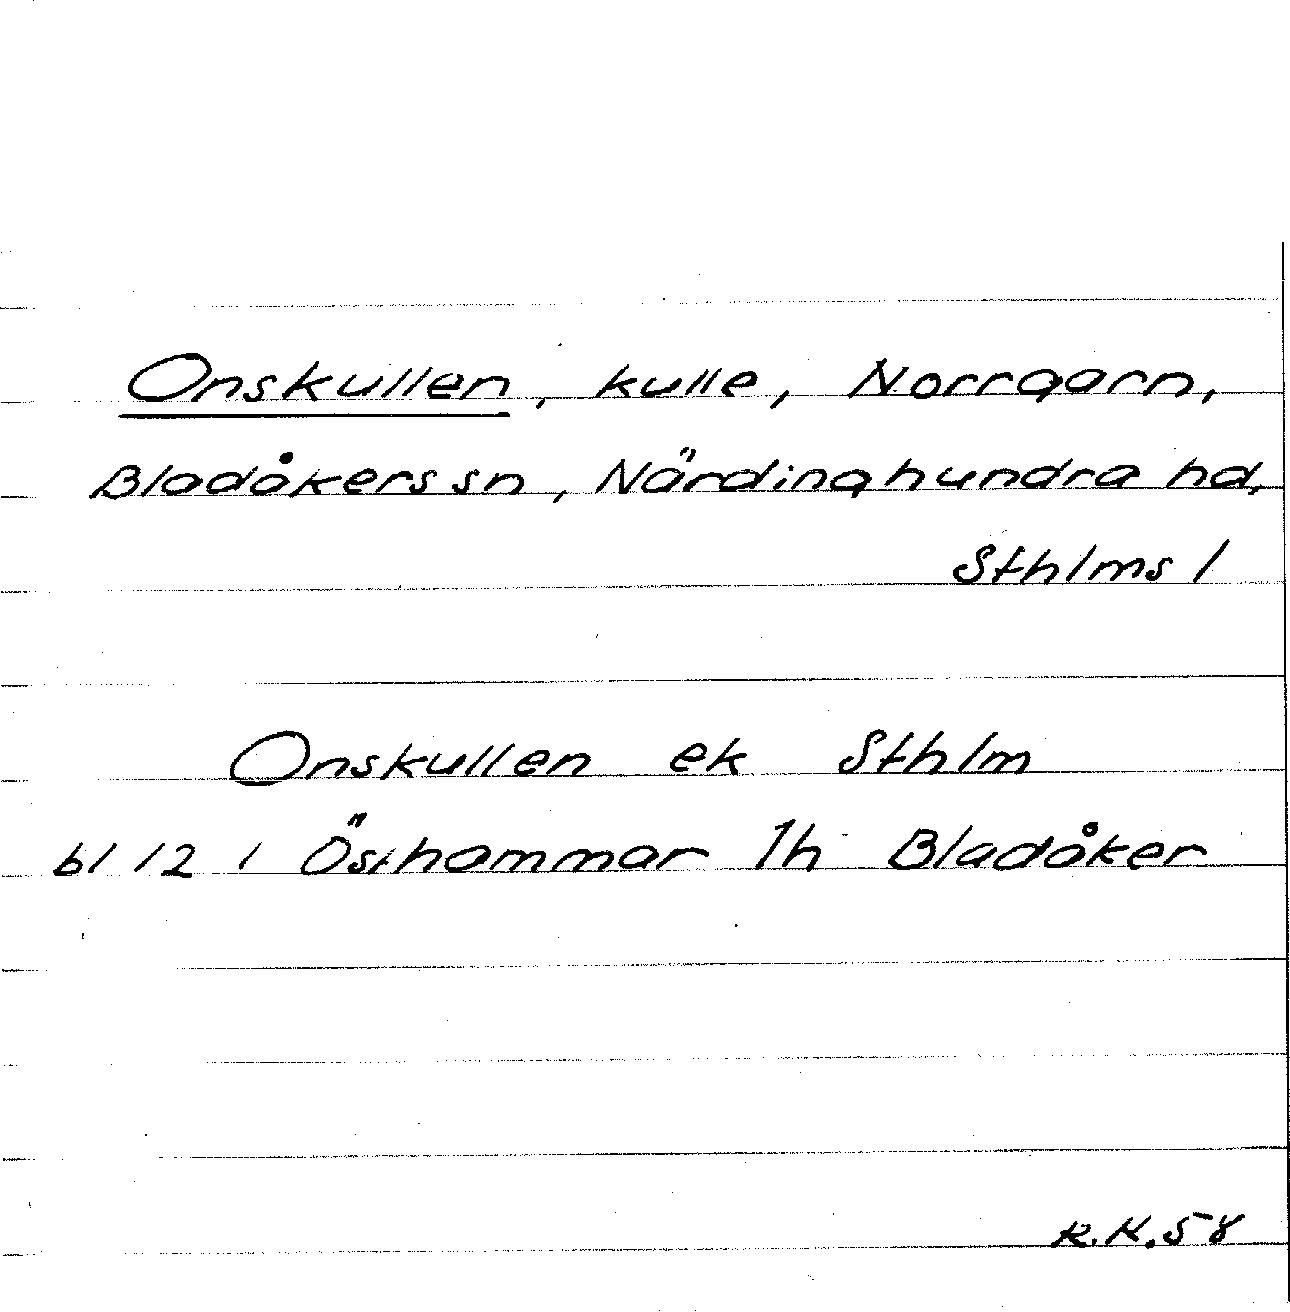 Onskullen, kulle, Norrgarn,
Bladåkers sn, Närdinghundra hd,
Sthlms l
Onskullen ek Sthlm
bl 12 i Östhammar 1h Bladåker
R.K. 58